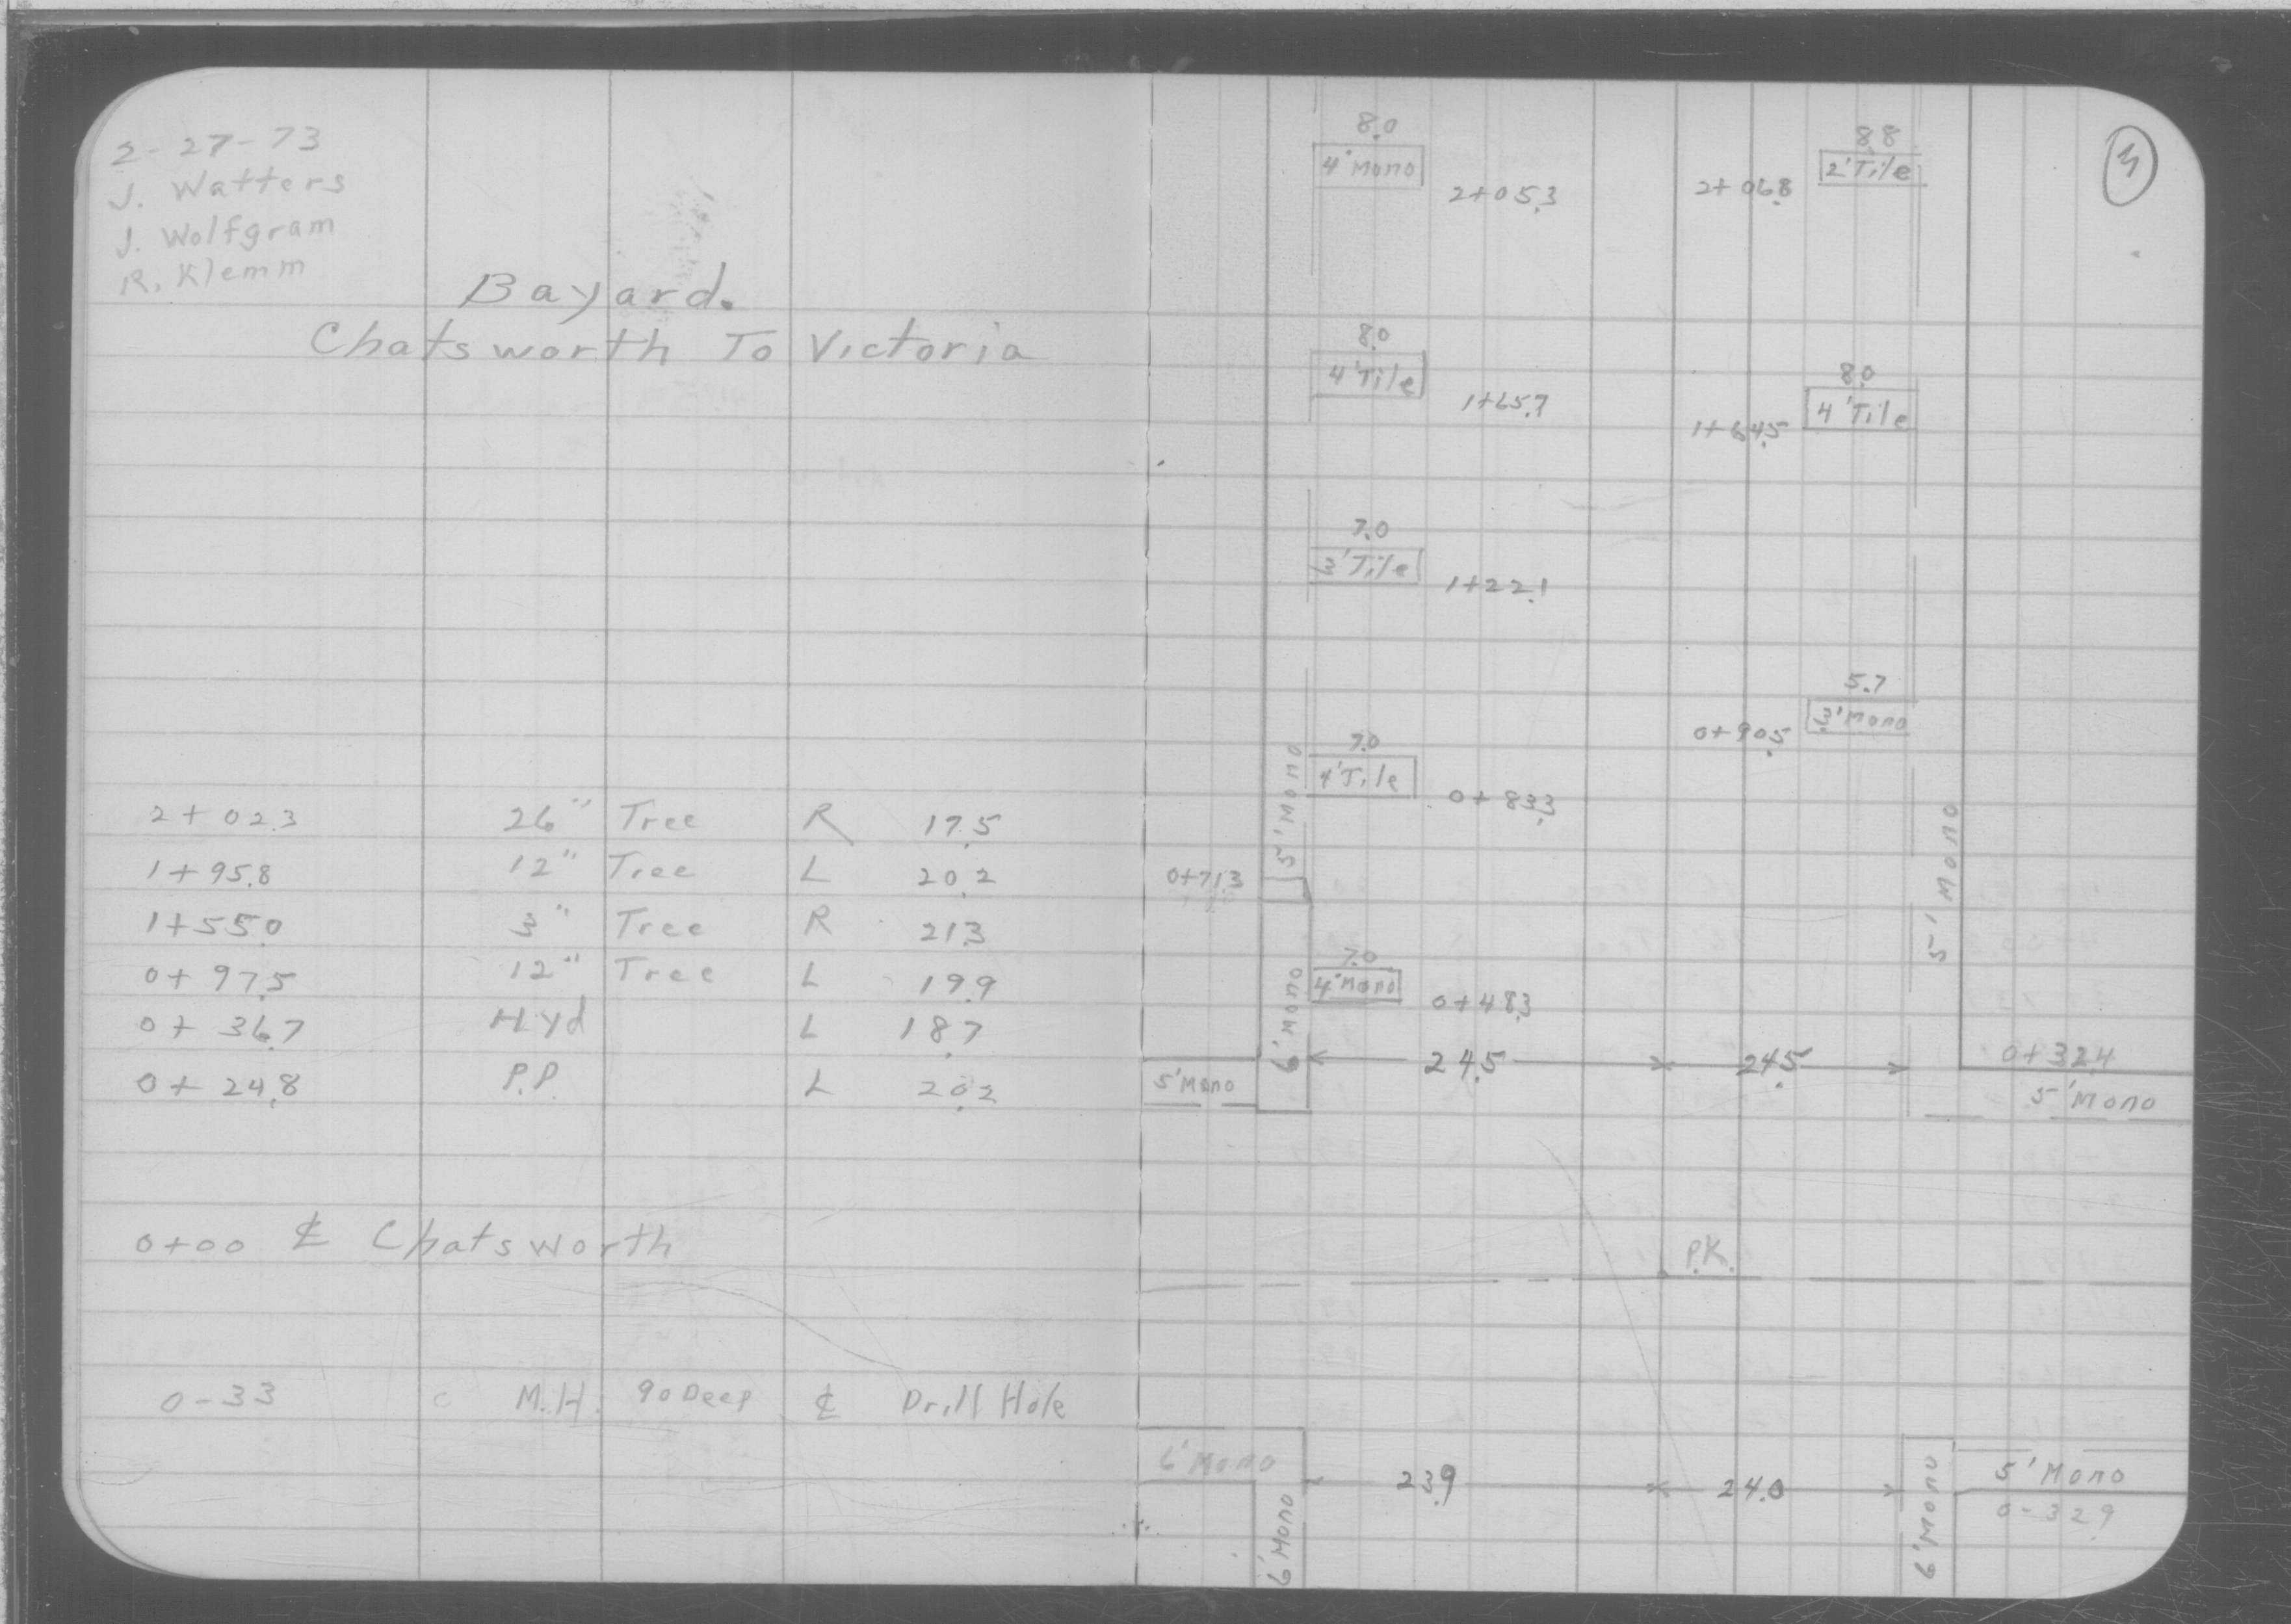 2-27-73
J. Watters
J. Wolfgram
R. Klemm
Bayard.
Chatsworth To Victoria
2+02.3 26" Tree R 17.5
1+95.8 12" Tree L 20.2
1+55.0 3" Tree R 21.3
0+97.5 12" Tree L 19.9
0+36.7 Hyd L 18.7
0+24.8 P.P. L 20.2
0+00 ℄ Chatsworth
0-33 M.H. 90 Deep ℄ Drill Hole
8.0
4' Mono
2+05.3
2+06.8
8.8
2' Tile
8.0
4' Tile
1+65.7
1+64.5
8.0
4' Tile
7.0
3' Tile
1+22.1
5.7
3' Mono
0+90.5
7.0
4' Tile
0+83.3
5' Mono
0+71.3
5' Mono
7.0
4' Mono
0+48.3
6' Mono
24.5
24.5
0+32.4
5' Mono
5' Mono
P.K.
6' Mono
23.9
24.0
5' Mono
0-32.9
6' Mono
6' Mono